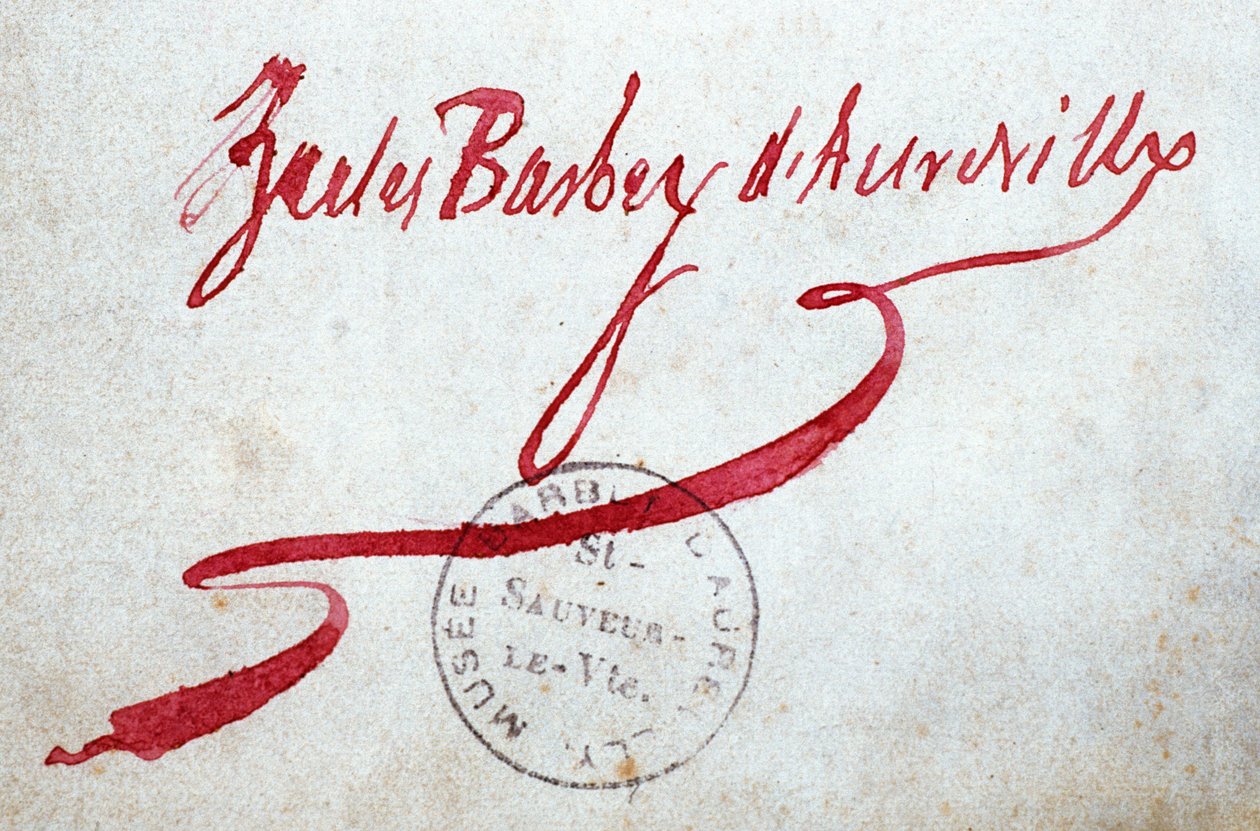 Jules Barbey d'Aurevilly
MUSÉE BARBEY D'AUREVILLY
St-
SAUVEUR-
LE-Vte.